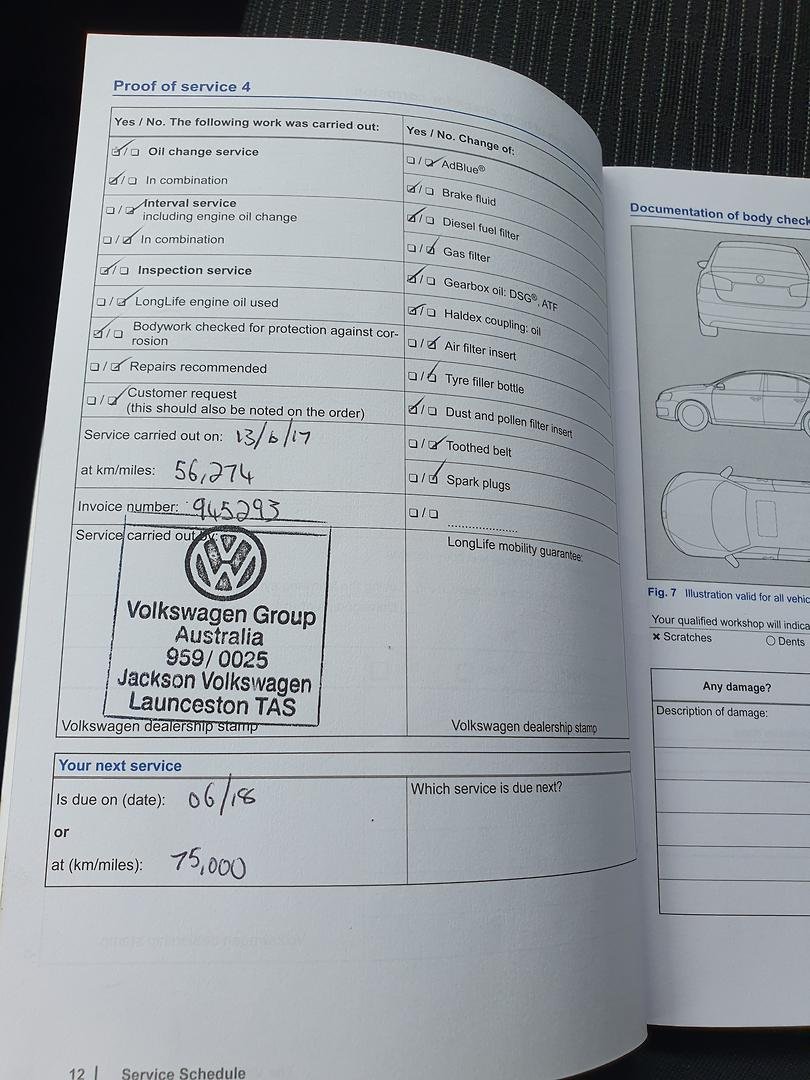 Proof of service 4
Yes / No. The following work was carried out:
Oil change service
In combination
Interval service
including engine oil change
In combination
Inspection service
LongLife engine oil used
Bodywork checked for protection against cor-
rosion
Repairs recommended
Customer request
(this should also be noted on the order)
Service carried out on: 13/6/17
at km/miles: 56,274
Invoice number: 945293
Service carried out by:
Volkswagen Group
Australia
959/0025
Jackson Volkswagen
Launceston TAS
Volkswagen dealership stamp
Yes / No. Change of:
AdBlue®
Brake fluid
Diesel fuel filter
Gas filter
Gearbox oil: DSG®, ATF
Haldex coupling: oil
Air filter insert
Tyre filler bottle
Dust and pollen filter insert
Toothed belt
Spark plugs
LongLife mobility guarantee:
Volkswagen dealership stamp
Your next service
Is due on (date): 06/18
or
at (km/miles): 75,000
Which service is due next?
12 | Service Schedule
Documentation of body check
Fig. 7 Illustration valid for all vehic
Your qualified workshop will indica
Scratches
Dents
Any damage?
Description of damage: